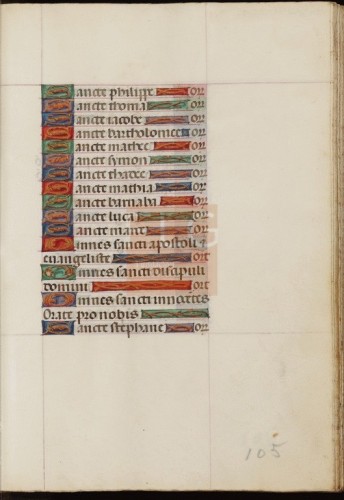 Sancte philippe Or̄
Sancte thoma Or̄
Sancte iacobe Or̄
Sancte bartholomee Or̄
Sancte mathee Or̄
Sancte symon Or̄
Sancte thadee Or̄
Sancte mathia Or̄
Sancte barnaba Or̄
Sancte luca Or̄
Sancte marce Or̄
Omnes sancti apostoli &
euangeliste Or̄t
Omnes sancti discipuli
domini Or̄t
Omnes sancti innocētes
Orate pro nobis Or̄t
Sancte stephane Or̄
105